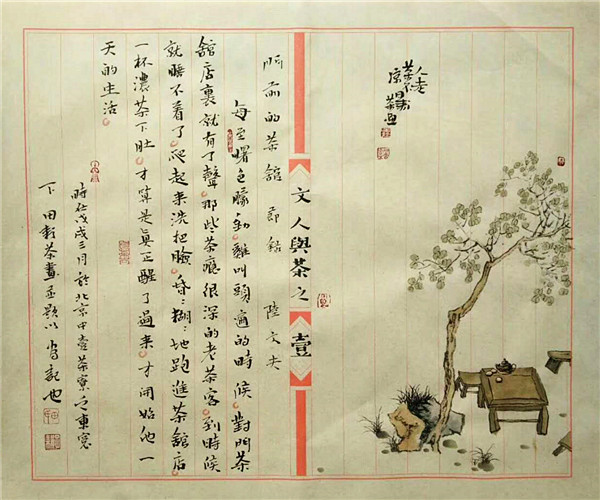 人走
茶不
凉
文人與茶之壹
門前的茶館 節錄 陸文夫
每至曙色朦動。雞叫頭遍的時候。對門茶
館店裏就有了聲。那些茶癮很深的老茶客。到時候
就睡不着了。爬起來洗把臉。昏:糊:地跑進茶館店。
一杯濃茶下肚。才算是真正醒了過來。才開始他一
天的生活。
時在戊戌三月於北京中壹茶寮之東窗
下田茶畫並題以為記也